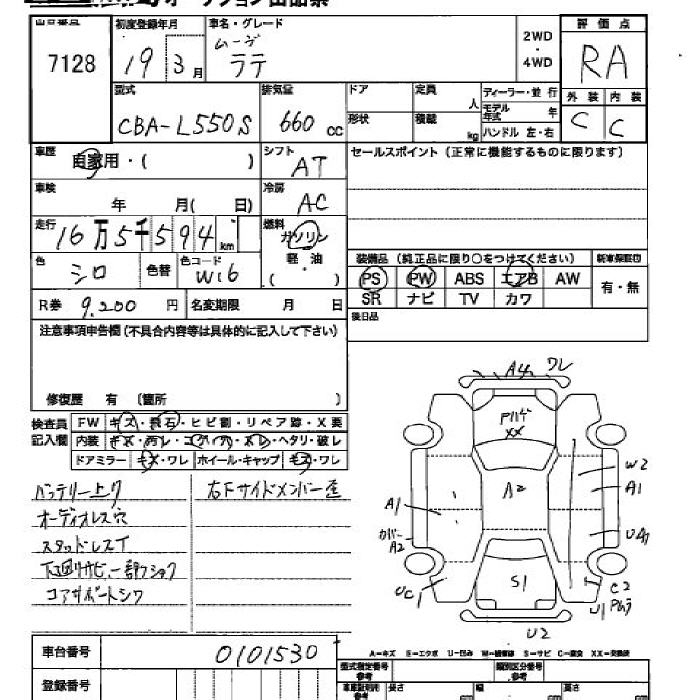 オークション出品票
出品番号 初度登録年月 車名・グレード 評価点
7128 19 3月 ムーヴ ラテ 2WD・4WD RA
型式 排気量 ドア 定員 ディーラー・並行 外装 内装
CBA-L550S 660 cc 形状 人 モデル年式 年 C C
積載 kg ハンドル 左・右
車歴 自家用・( ) シフト AT セールスポイント(正常に機能するものに限ります)
車検 年 月( 日) 冷房 AC
走行 16万5千594km 燃料 ガソリン
色 シロ 色替 色コード W16 軽油 ( )
装備品(純正品に限り○をつけてください) 新車保証印
PS PW ABS エアB AW 有・無
SR ナビ TV カワ
R券 9,200円 名変期限 月 日
後日品
注意事項申告欄(不具合内容等は具体的に記入して下さい)
修復歴 有 (箇所 )
検査員記入欄 FW キズ・飛石・ヒビ割・リペア跡・X要
内装 キズ・汚レ・コゲ・穴・スレ・ヘタリ・破レ
ドアミラー キズ・ワレ ホイール・キャップ キズ・ワレ
バッテリー上り 右Fサイドメンバー歪
オーディオレス穴
スタッドレスT
下廻りサビ、一部フショク
コアサポートシワ
A4 ワレ
Pハゲ
XX
A2
W2
A1
A1
カバーA2
UA1
UC1
S1
C2
U1 Pムラ
U2
A=キズ E=エクボ U=凹み W=補修跡 S=サビ C=腐食 XX=交換済
車台番号 0101530
型式指定番号 参考 類別区分番号 参考
登録番号 車車証明用 参考 長さ 幅 高さ